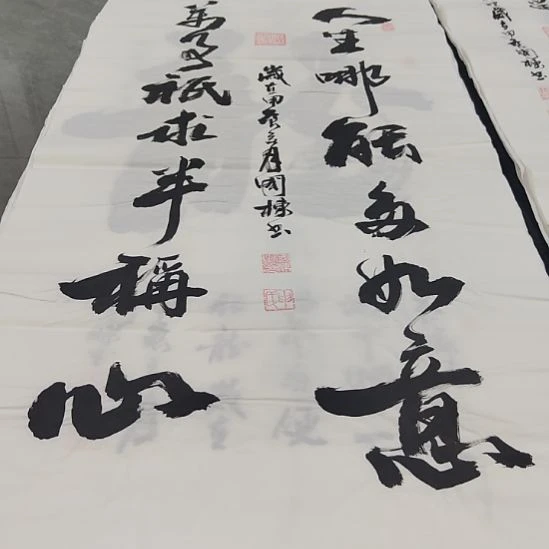 人生哪能多如意
萬事祇求半稱心
歲在甲辰之月國棟書